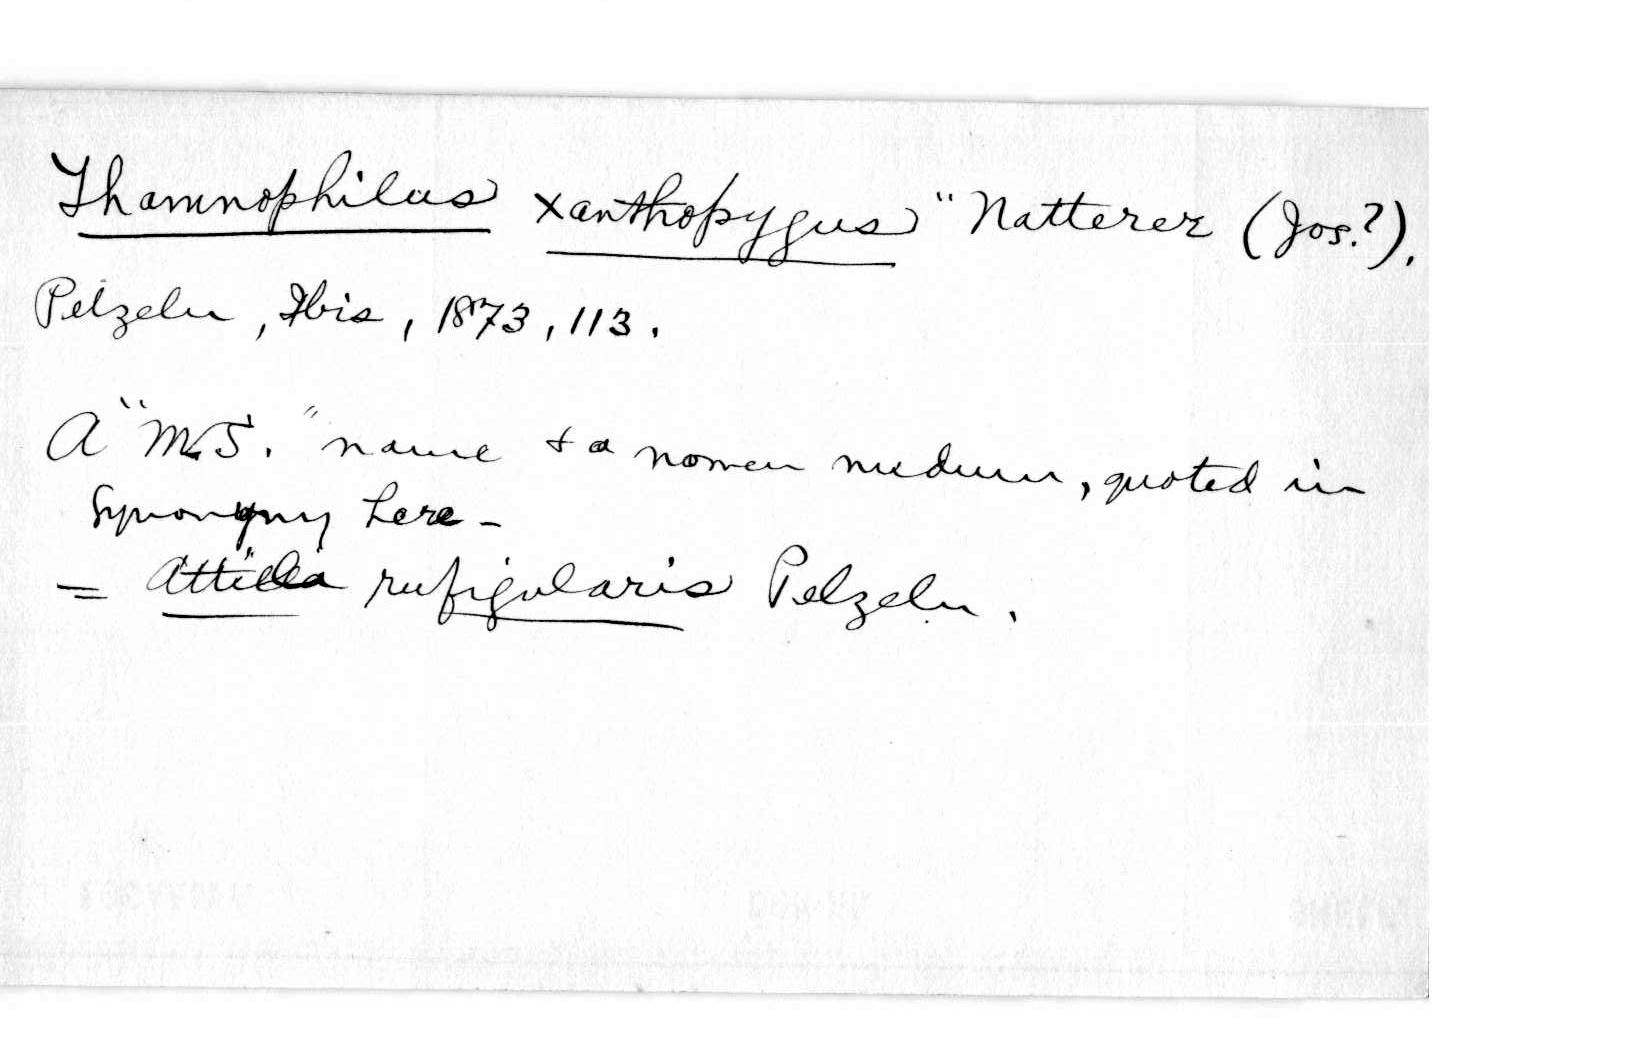 Thamnophilus xanthopygus "Natterer (Jos.?).
Pelzeln, Ibis, 1873, 113.
A "MS." name & a nomen nudum, quoted in
Synonymy here -
= Attila rufigularis Pelzeln.